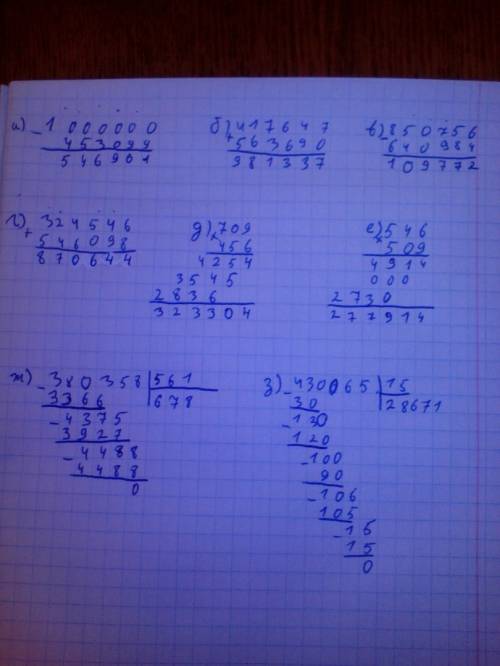 а) - 1 0 0 0 0 0 0
4 5 3 0 9 9
5 4 6 9 0 1
б) + 4 1 7 6 4 7
5 6 3 6 9 0
9 8 1 3 3 7
в) - 8 5 0 7 5 6
6 4 0 9 8 4
1 0 9 7 7 2
г) + 3 2 4 5 4 6
5 4 6 0 9 8
8 7 0 6 4 4
д) × 7 0 9
4 5 6
4 2 5 4
3 5 4 5
2 8 3 6
3 2 3 3 0 4
е) × 5 4 6
5 0 9
4 9 1 4
0 0 0
2 7 3 0
2 7 7 9 1 4
ж) - 3 8 0 3 5 8 | 5 6 1
3 3 6 6 | 6 7 8
- 4 3 7 5
3 9 2 7
- 4 4 8 8
4 4 8 8
0
з) - 4 3 0 0 6 5 | 1 5
3 0 | 2 8 6 7 1
- 1 3 0
1 2 0
- 1 0 0
9 0
- 1 0 6
1 0 5
- 1 5
1 5
0